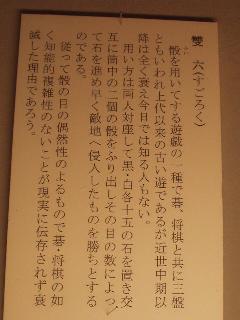 雙六(すごろく)
骰を用いてする遊戯の一種で碁、将棋と共に三盤
ともいわれ上代以来の古い遊であるが近世中期以
降は全く衰え今日では知る人もない。
用い方は両人対座して黒・白各十五の石を置き交
互に筒中の二個の骰をふり出しその目の数によつ
て石を進め早く敵地へ侵入したものを勝ちとする
のである。
従って骰の目の偶然性のよるもので碁・将棋の如
く知能的複雑性のないことが現実に伝存されず衰
滅した理由であろう。